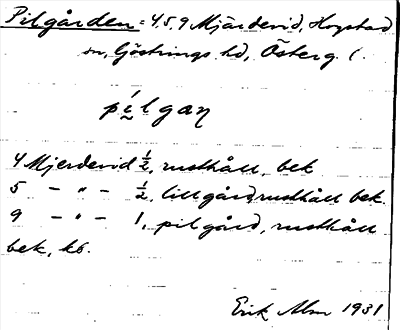 Pilgården = 4.5.9 Mjärdevid, Hogstad
sn, Göstrings hd, Österg. l.
pílgaη
4 Mjerdevid ½, rusthåll, bek
5 – " – ½, lillgård, rusthåll bek.
9 – " – 1, pilgård, rusthåll
bek, kb.
Erik Alm 1931